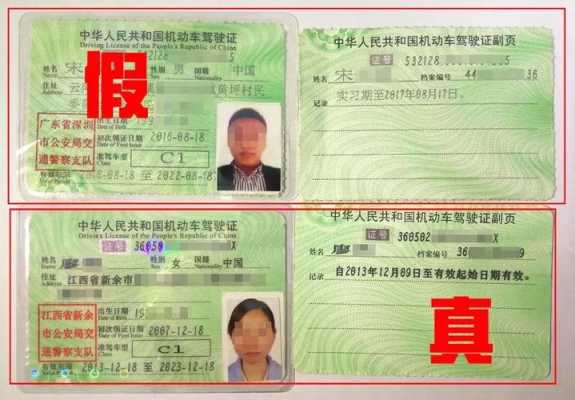 中华人民共和国机动车驾驶证
Driving License of the People's Republic of China
2128 5
姓名 宋 性别 男 国籍 中国
Name Sex Nationality
住址
Address 黄坪村民
假
出生日期
Date of Birth
广东省深圳
市公安局交
通警察支队
初次领证日期 2016-08-18
Date of First Issue
准驾车型 C1
Class
有效期限 2016-08-18 至 2022-08-18
中华人民共和国机动车驾驶证副页
证号 532128
姓名 宋 档案编号 44 36
记录 实习期至2017年08月17日。
中华人民共和国机动车驾驶证
Driving License of the People's Republic of China
证号 36050 X
姓名 性别 女 国籍 中国
Name Sex Nationality
住址 江西省新余市
Address
出生日期 19
Date of Birth
江西省新余
市公安局交
通警察支队
初次领证日期 2007-12-18
Date of First Issue
准驾车型 C1
Class
有效期限 2013-12-18 至 2023-12-18
中华人民共和国机动车驾驶证副页
证号 360502 X
姓名 档案编号 36 9
记录 自2013年12月09日至有效起始日期有效。
真